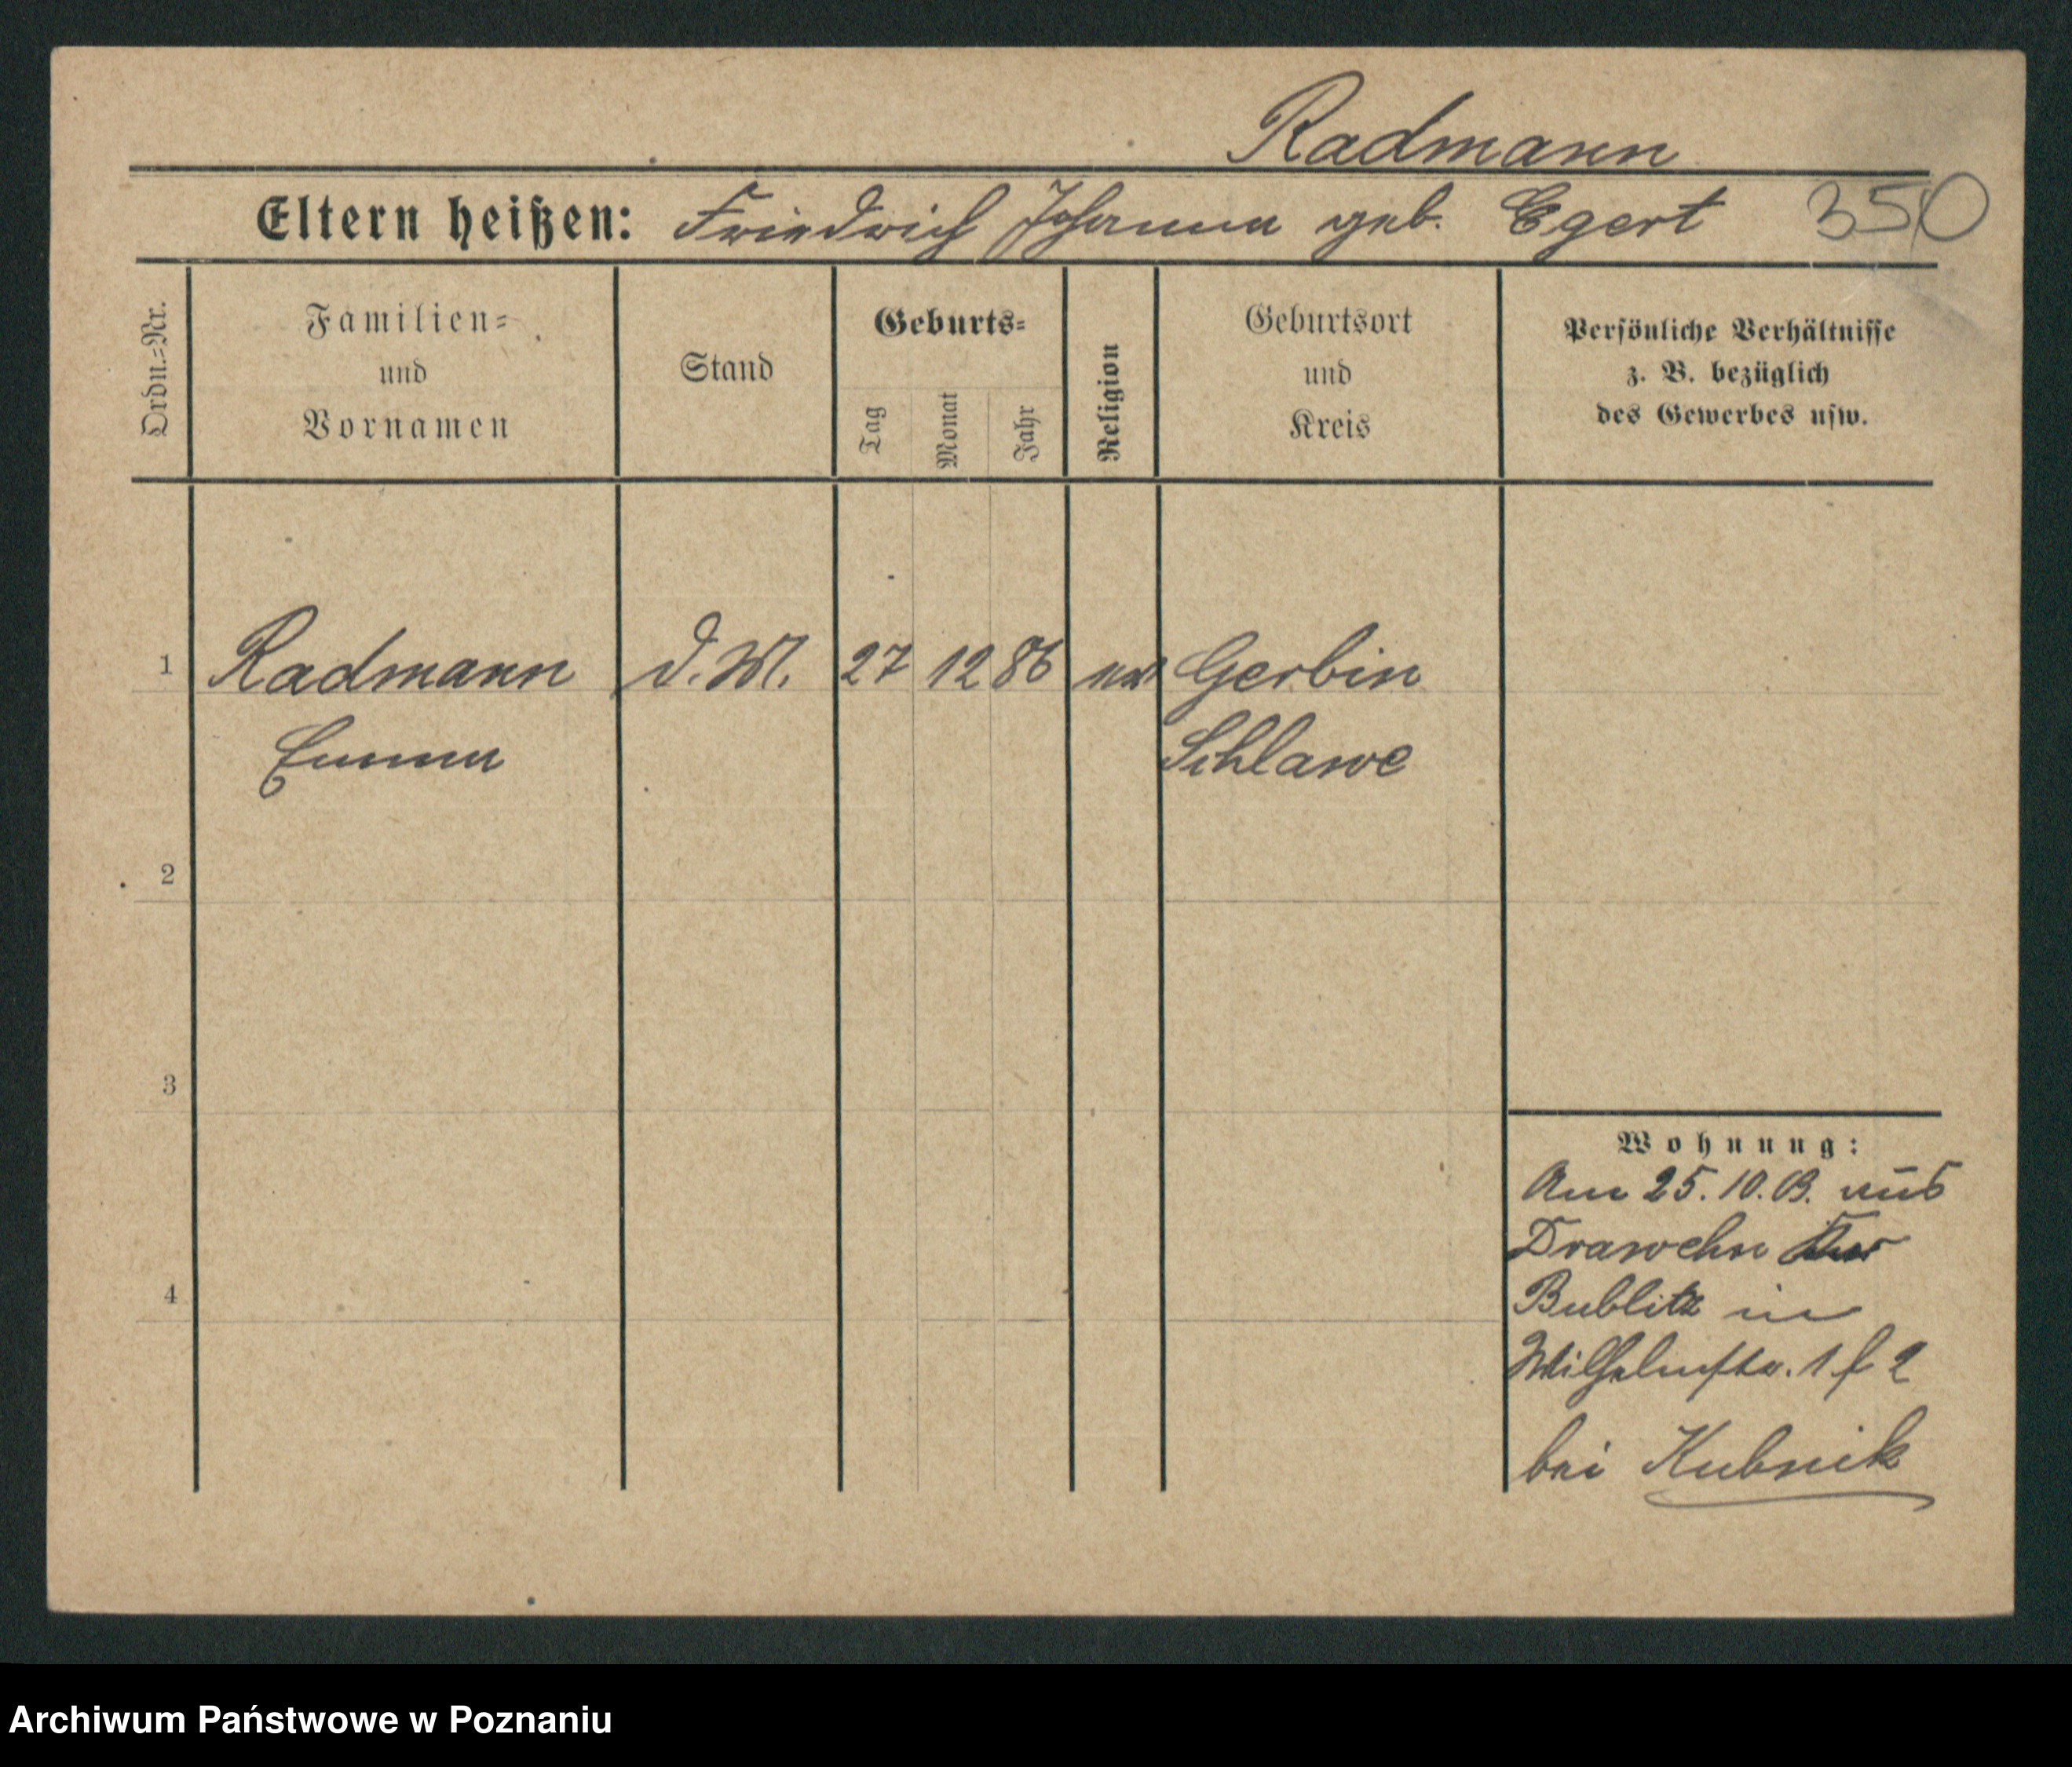 Radmann
Eltern heißen: Friedrich Johanna geb. Egert 350
Ordn.=Nr.
Familien=
und
Vornamen
Stand
Geburts=
Tag
Monat
Jahr
Religion
Geburtsort
und
Kreis
Persönliche Verhältnisse
z. B. bezüglich
des Gewerbes usw.
1 Radmann D.M. 27 12 86 Gerbin
Emma Schlawe
2
3
4
Wohnung:
Am 25. 10. 09. aus
Drawehn
Bublitz in
Wilhelmstr. 1 f 2
bei Kubnik
Archiwum Państwowe w Poznaniu